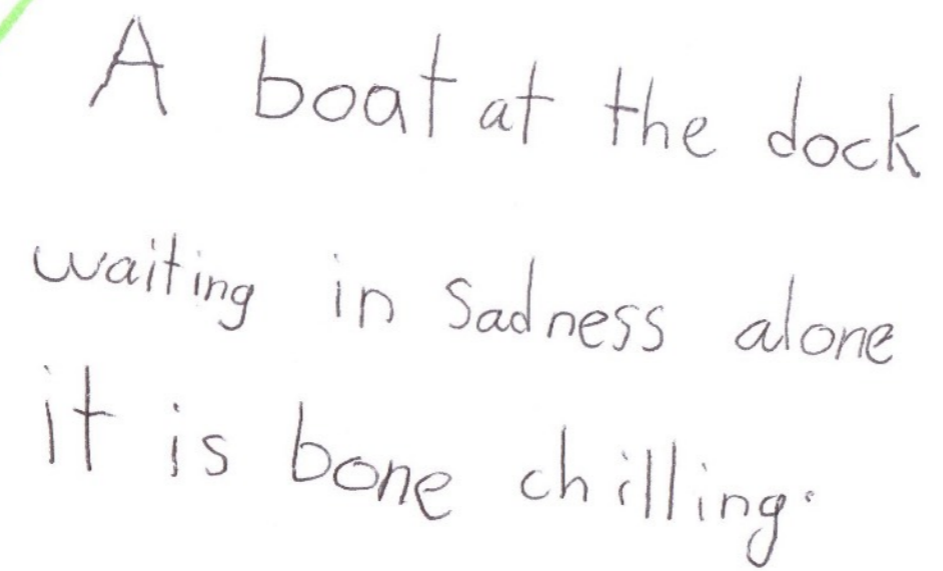 A boat at the dock
waiting in sadness alone
it is bone chilling.